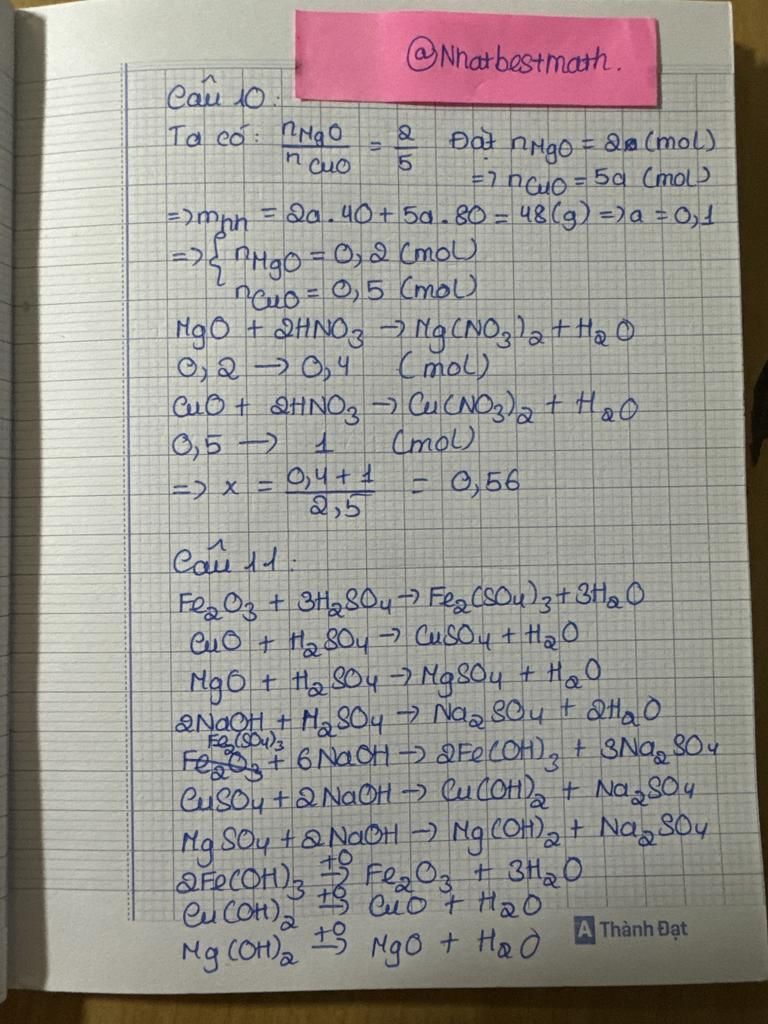 @Nhatbestmath.
Câu 10:
Ta có: nMgO / nCuO = 2/5 Đặt nMgO = 2a (mol)
=> nCuO = 5a (mol)
=> mhh = 2a . 40 + 5a . 80 = 48 (g) => a = 0,1
=> { nMgO = 0,2 (mol)
nCuO = 0,5 (mol)
MgO + 2HNO3 → Mg(NO3)2 + H2O
0,2 → 0,4 (mol)
CuO + 2HNO3 → Cu(NO3)2 + H2O
0,5 → 1 (mol)
=> x = (0,4 + 1) / 2,5 = 0,56
Câu 11:
Fe2O3 + 3H2SO4 → Fe2(SO4)3 + 3H2O
CuO + H2SO4 → CuSO4 + H2O
MgO + H2SO4 → MgSO4 + H2O
2NaOH + H2SO4 → Na2SO4 + 2H2O
Fe2(SO4)3
Fe2O3 + 6NaOH → 2Fe(OH)3 + 3Na2SO4
CuSO4 + 2NaOH → Cu(OH)2 + Na2SO4
MgSO4 + 2NaOH → Mg(OH)2 + Na2SO4
2Fe(OH)3 t0→ Fe2O3 + 3H2O
Cu(OH)2 t0→ CuO + H2O
Mg(OH)2 t0→ MgO + H2O
A Thành Đạt